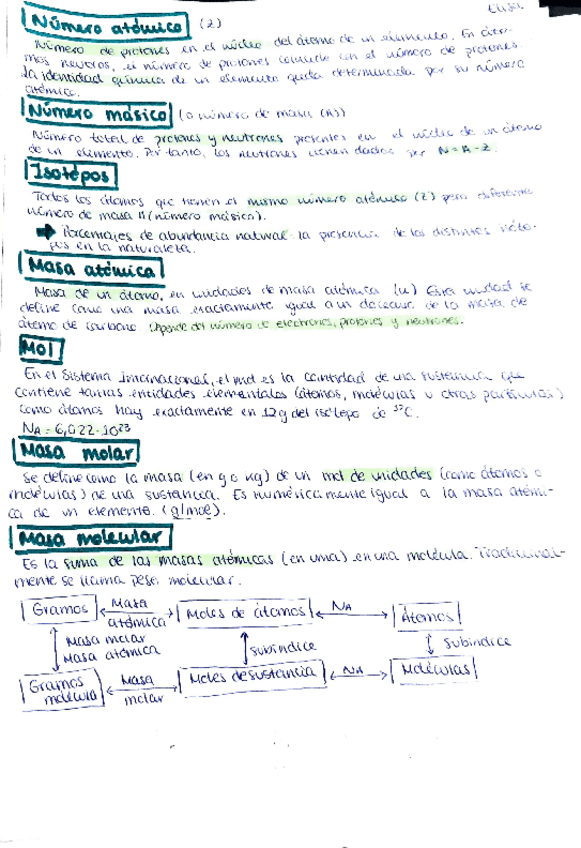 Número atómico (Z)
Número de protones en el núcleo del átomo de un elemento. En áto-
mos neutros, el número de protones coincide con el número de protones
La identidad química de un elemento queda determinada por su número
atómico.
Número másico (o número de masa (A))
Número total de protones y neutrones presentes en el núcleo de un átomo
de un elemento. Por tanto, los neutrones vienen dados por N=A-Z.
Isótopos
Todos los átomos que tienen el mismo número atómico (Z) pero diferente
número de masa A (número másico).
Porcentajes de abundancia natural: la presencia de los distintos isóto-
pos en la naturaleza.
Masa atómica
Masa de un átomo, en unidades de masa atómica (u) Esta unidad se
define como una masa exactamente igual a un doceavo de la masa de
átomo de carbono. Depende del número de electrones, protones y neutrones.
Mol
En el Sistema Internacional, el mol es la cantidad de una sustancia que
contiene tantas entidades elementales (átomos, moléculas u otras partículas)
como átomos hay exactamente en 12g del isótopo de ¹²C.
NA = 6,022·10²³
Masa molar
Se define como la masa (en g o kg) de un mol de unidades (como átomos o
moléculas) de una sustancia. Es numéricamente igual a la masa atómi-
ca de un elemento. (g/mol).
Masa molecular
Es la suma de las masas atómicas (en uma) en una molécula. Tradicional-
mente se llama peso molecular.
Gramos Masa atómica Moles de átomos NA Átomos
Masa molar
Masa atómica
Subíndice
Subíndice
Gramos molécula Masa molar Moles de sustancia NA Moléculas